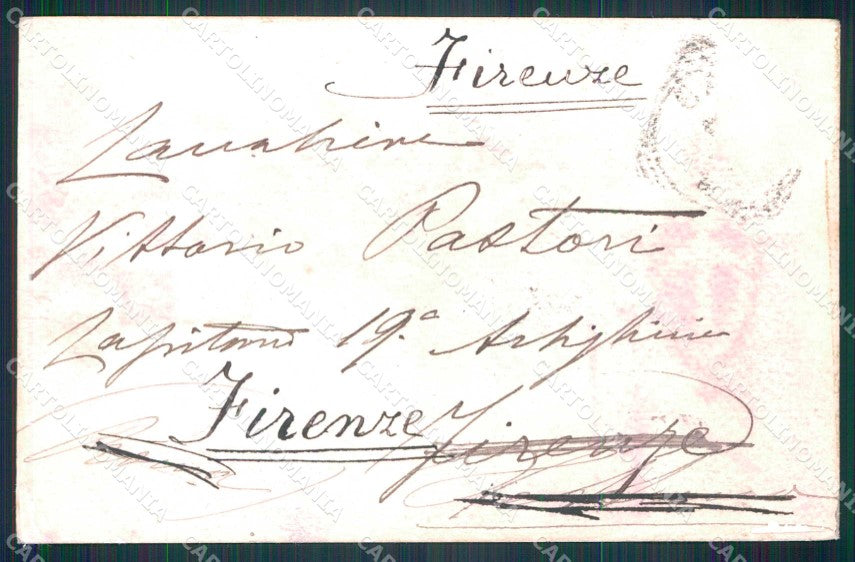 Firenze
Vittorio Pastori
Capitano 19ª Artiglieria
Firenze Firenze
CARTOLINOMANIA